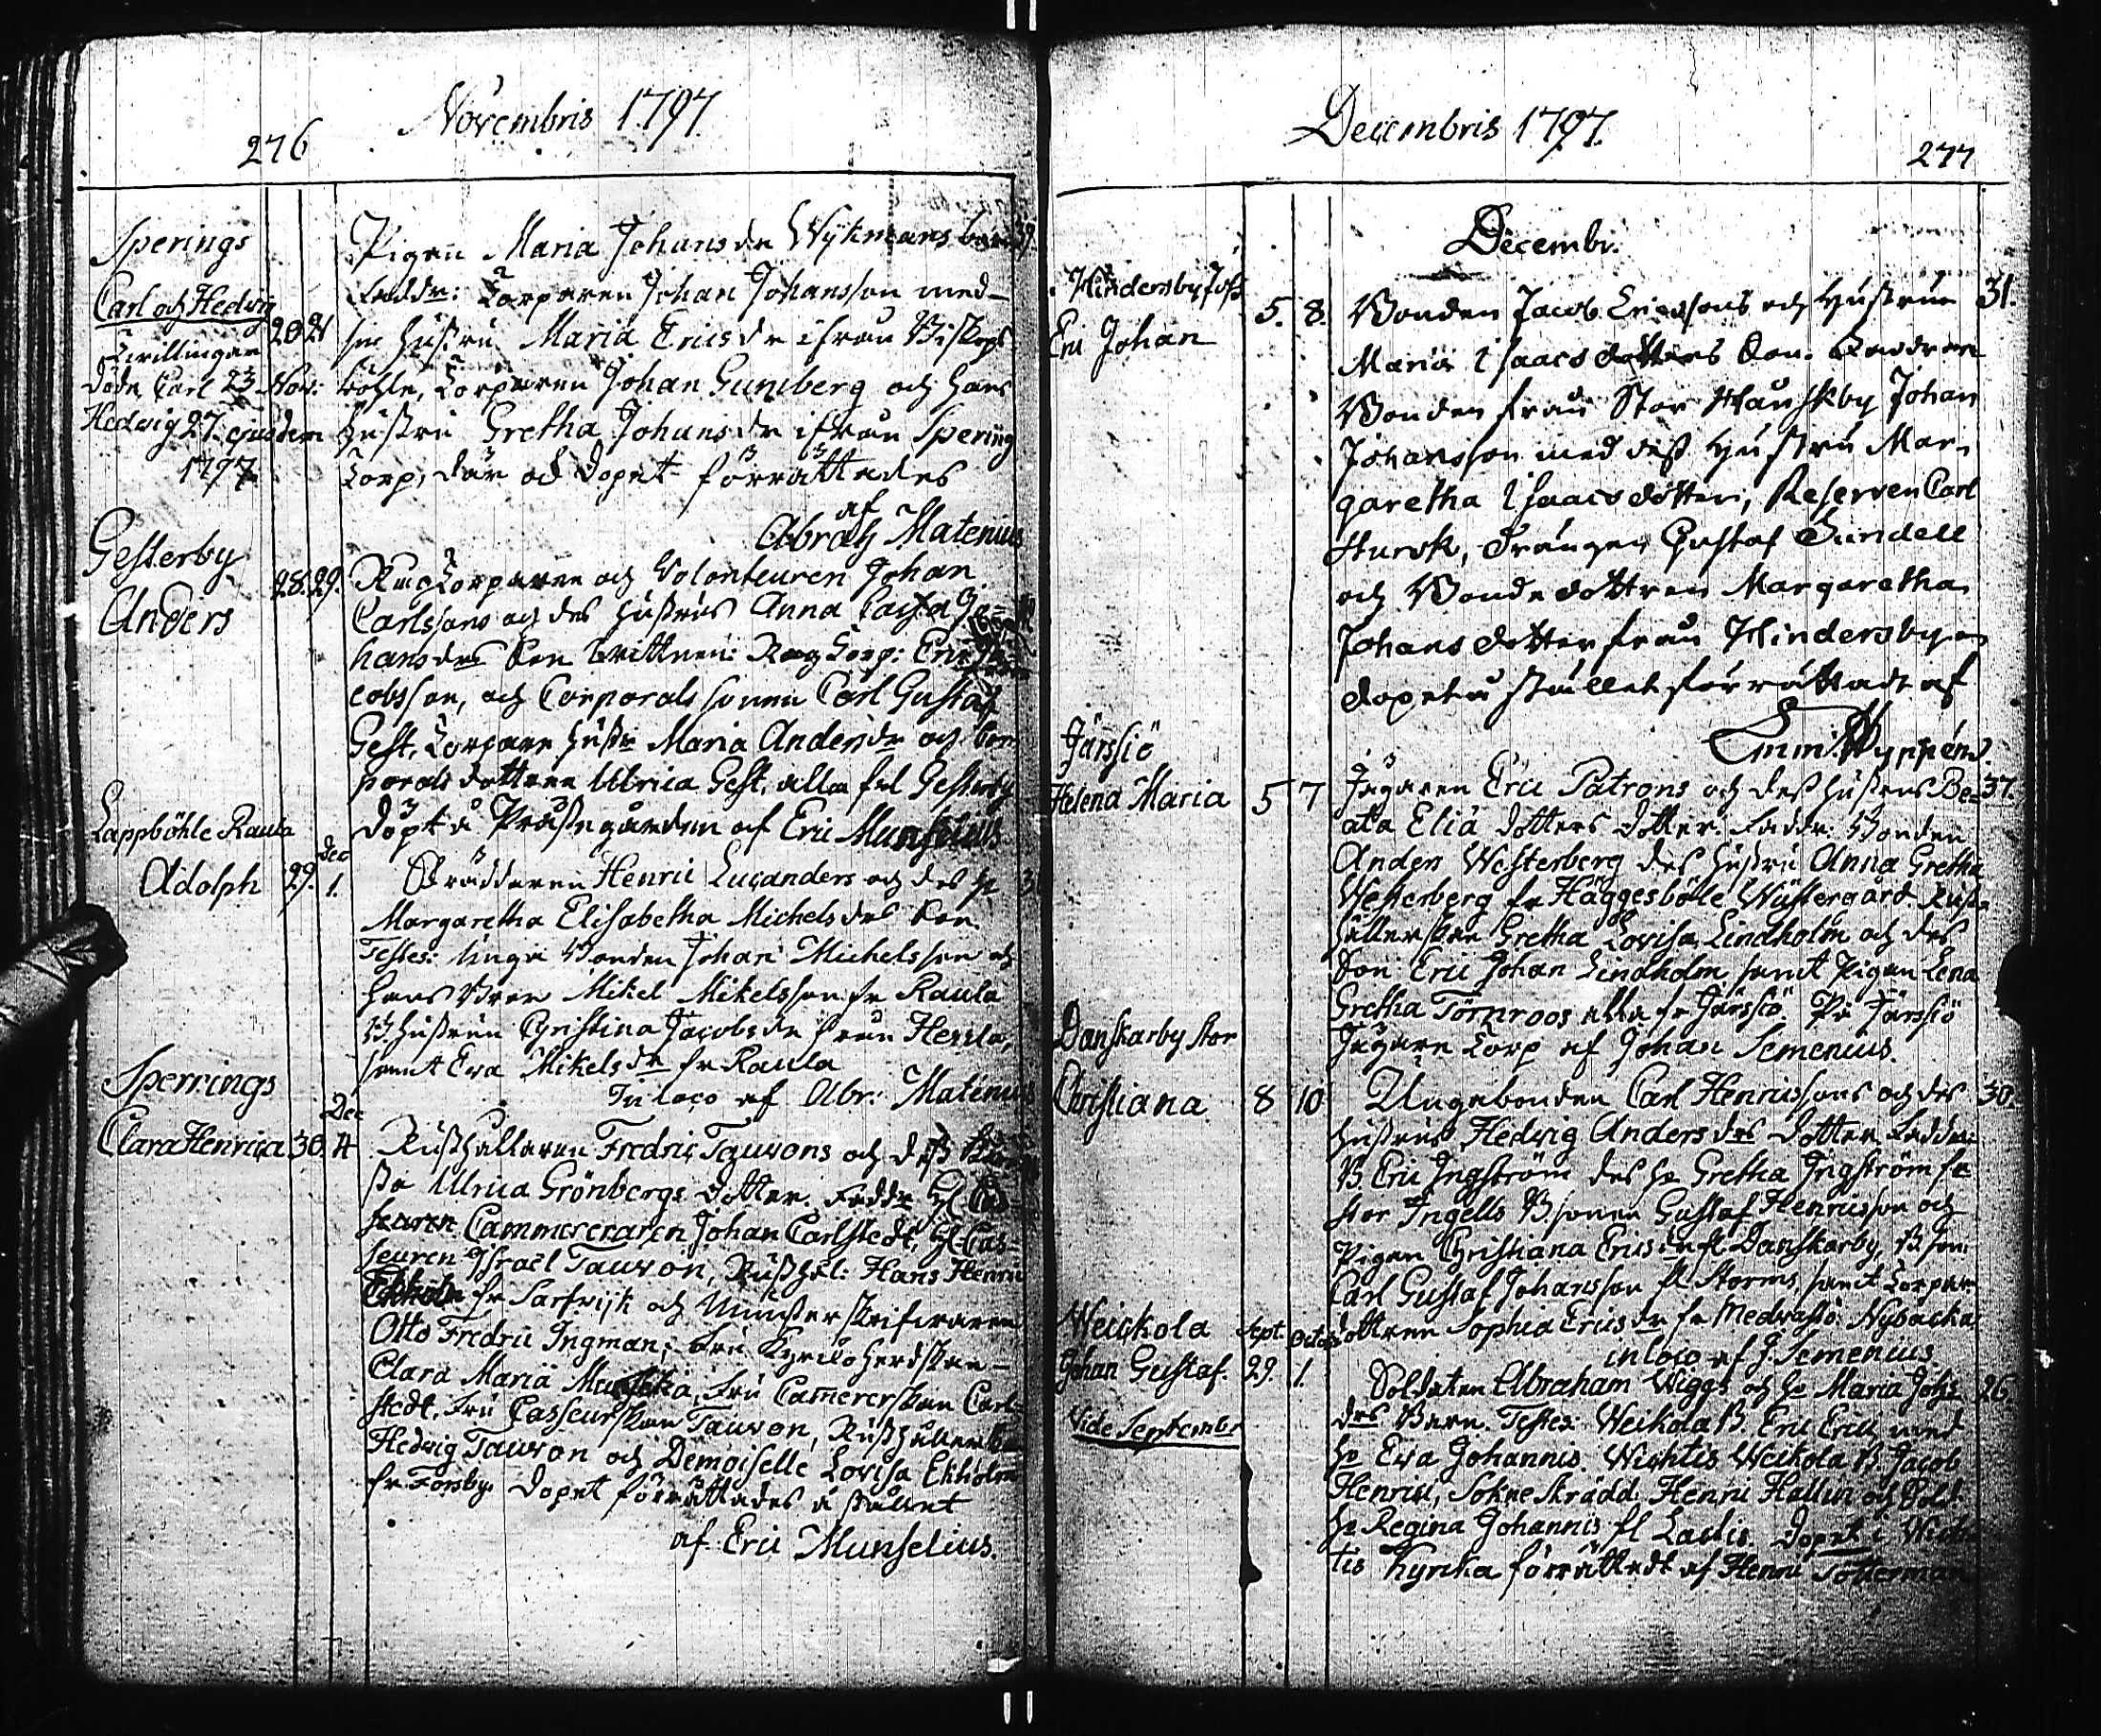 276
Novembris 1797.
Sperings
Carl och Hedvig
Tvillingar
döde Carl 23 Nov:
Hedvig 27 ejusdem
1797.
20 21
Pigan Maria Johansdr Wykmans barn 39.
Faddr: Torparen Johan Johansson med
sin hustru Maria Ericsdr ifrån Biskops
böhle, Torparen Johan Gumberg och hans
hustru Gretha Johansdr ifrån Sperings
Torp, där och dopet förrättades
af
Abrah Matenius
Gesterby
Anders
28. 29.
Rug Torparen och Volonteuren Johan
Carlssons och des hustrus Anna Cajsa Jo-
hansdrs Son Wittnen: Rug Torp: Eric Ja-
cobsson, och Corporals sonen Carl Gustaf
Gest, Torpare hustr Maria Andersdr och Cor
porals dottren Ulrica Gest, alla frl Gesterby
döpt å Prästegården af Eric Munselius
Lappböhle Raula
Adolph 29. Dec 1.
Skräddaren Henric Lucanders och des h
Margaretha Elisabetha Michelsdrs Son.
Testes: Unga Bonden Johan Michelsson och
hans Bror Mikel Mikelsson fr Raula
B. hustrun Christina Jacobsdr från Hessla,
samt Eva Mikelsdr fr Raula
In loco af Abr: Matenius
Sperrings
Clara Henrica 30. Dec 4
Rusthållaren Fredric Tauvons och dess
Ulrica Grönbergs dotter. Faddr
Cammereraren Johan Carlstedt, H Cas-
seuren Israel Tauvon, Rusthål: Hans Henric
Ekholm fr Sarfvijk och Mönsterskrifvaren
Otto Fredric Ingman, Fru Kyrkoherdskan
Clara Maria, Fru Camererskan Carl-
stedt, Fru Casseurskan Tauvon, Rusthållerskan
Hedvig Tauvon och Demoiselle Lovisa Ekholm
fr Forsby. Dopet förrättades å stället
af Eric Munselius.
Decembris 1797.
277
Decembr.
Hindersby Joss
Eric Johan
5. 8.
Bonden Jacob Ericssons och hustrun 31.
Maria Isaacs dotters Son. Faddrar
Bonden från Stor Hauskby Johan
Johansson med dess hustru Mar-
garetha Isaacs dotter, Reserven Carl
Sturck, Drängen Gustaf Sundell
och Bonde dottren Margaretha
Johans dotter från Hindersby
dopet å stället förrättadt af
Em. Nyppén.
Järssiö
Helena Maria 5 7
Jägaren Eric Patrons och dess hustrus Be- 37.
ata Elia dotters dotter. Faddr: Bonden
Anders Westerberg des hustru Anna Gretha
Westerberg fr Häggesböle Wästergård Rust-
hållerskan Gretha Lovisa Lindholm och des
Son Eric Johan Lindholm samt Pigan Lena
Gretha Törnroos alla fr Järssiö. På Järssiö
Jägare Torp af Johan Semenius.
Danskarby Stor
Christiana 8 10
Ungebonden Carl Henricssons och des 30.
hustrus Hedvig Andersdrs dotter Faddr:
B Eric Ingström des h Gretha Ingström fr
Stor Ingells B sonen Gustaf Henricsson och
Pigan Christiana Ericsdr fr Danskarby, B son:
Carl Gustaf Johansson fr Storms, samt Torpar
dottren Sophia Ericsdr fr Medvastö Nybacka
in loco af J. Semenius
Weickola
Johan Gustaf.
Sept. 29. Octob 1.
Vide Septembr
Soldaten Abraham Wiggs och h Maria Johs 26.
drs Barn. Testes: Weikola B. Eric Erici, med
h Eva Johannis. Wichtis Weikola B. Jacob
Henrici, Sokne Skrädd: Henric Hallin och Sold
h Regina Johannis fl Lastis. Dopet i Wich
tis Kyrka förrättadt af Henric Totterman